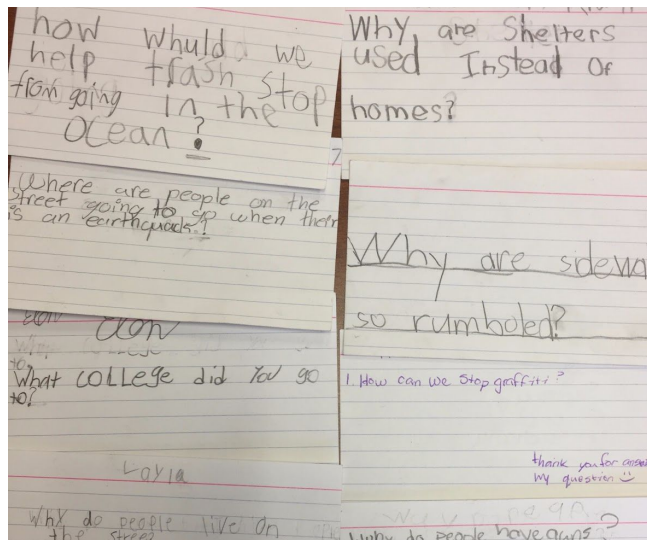 how whuld we
help trash stop
from going in the
Ocean?
Where are people on the
street going to go when their
is an earthquads?
What COLLege did You go
to?
Layla
Why do people live on
the street
Why are Shelters
used Instead Of
homes?
Why are sidewa
so rumboled?
1. How can we stop graffiti?
thank you for answ
my question
Why do people have guns?